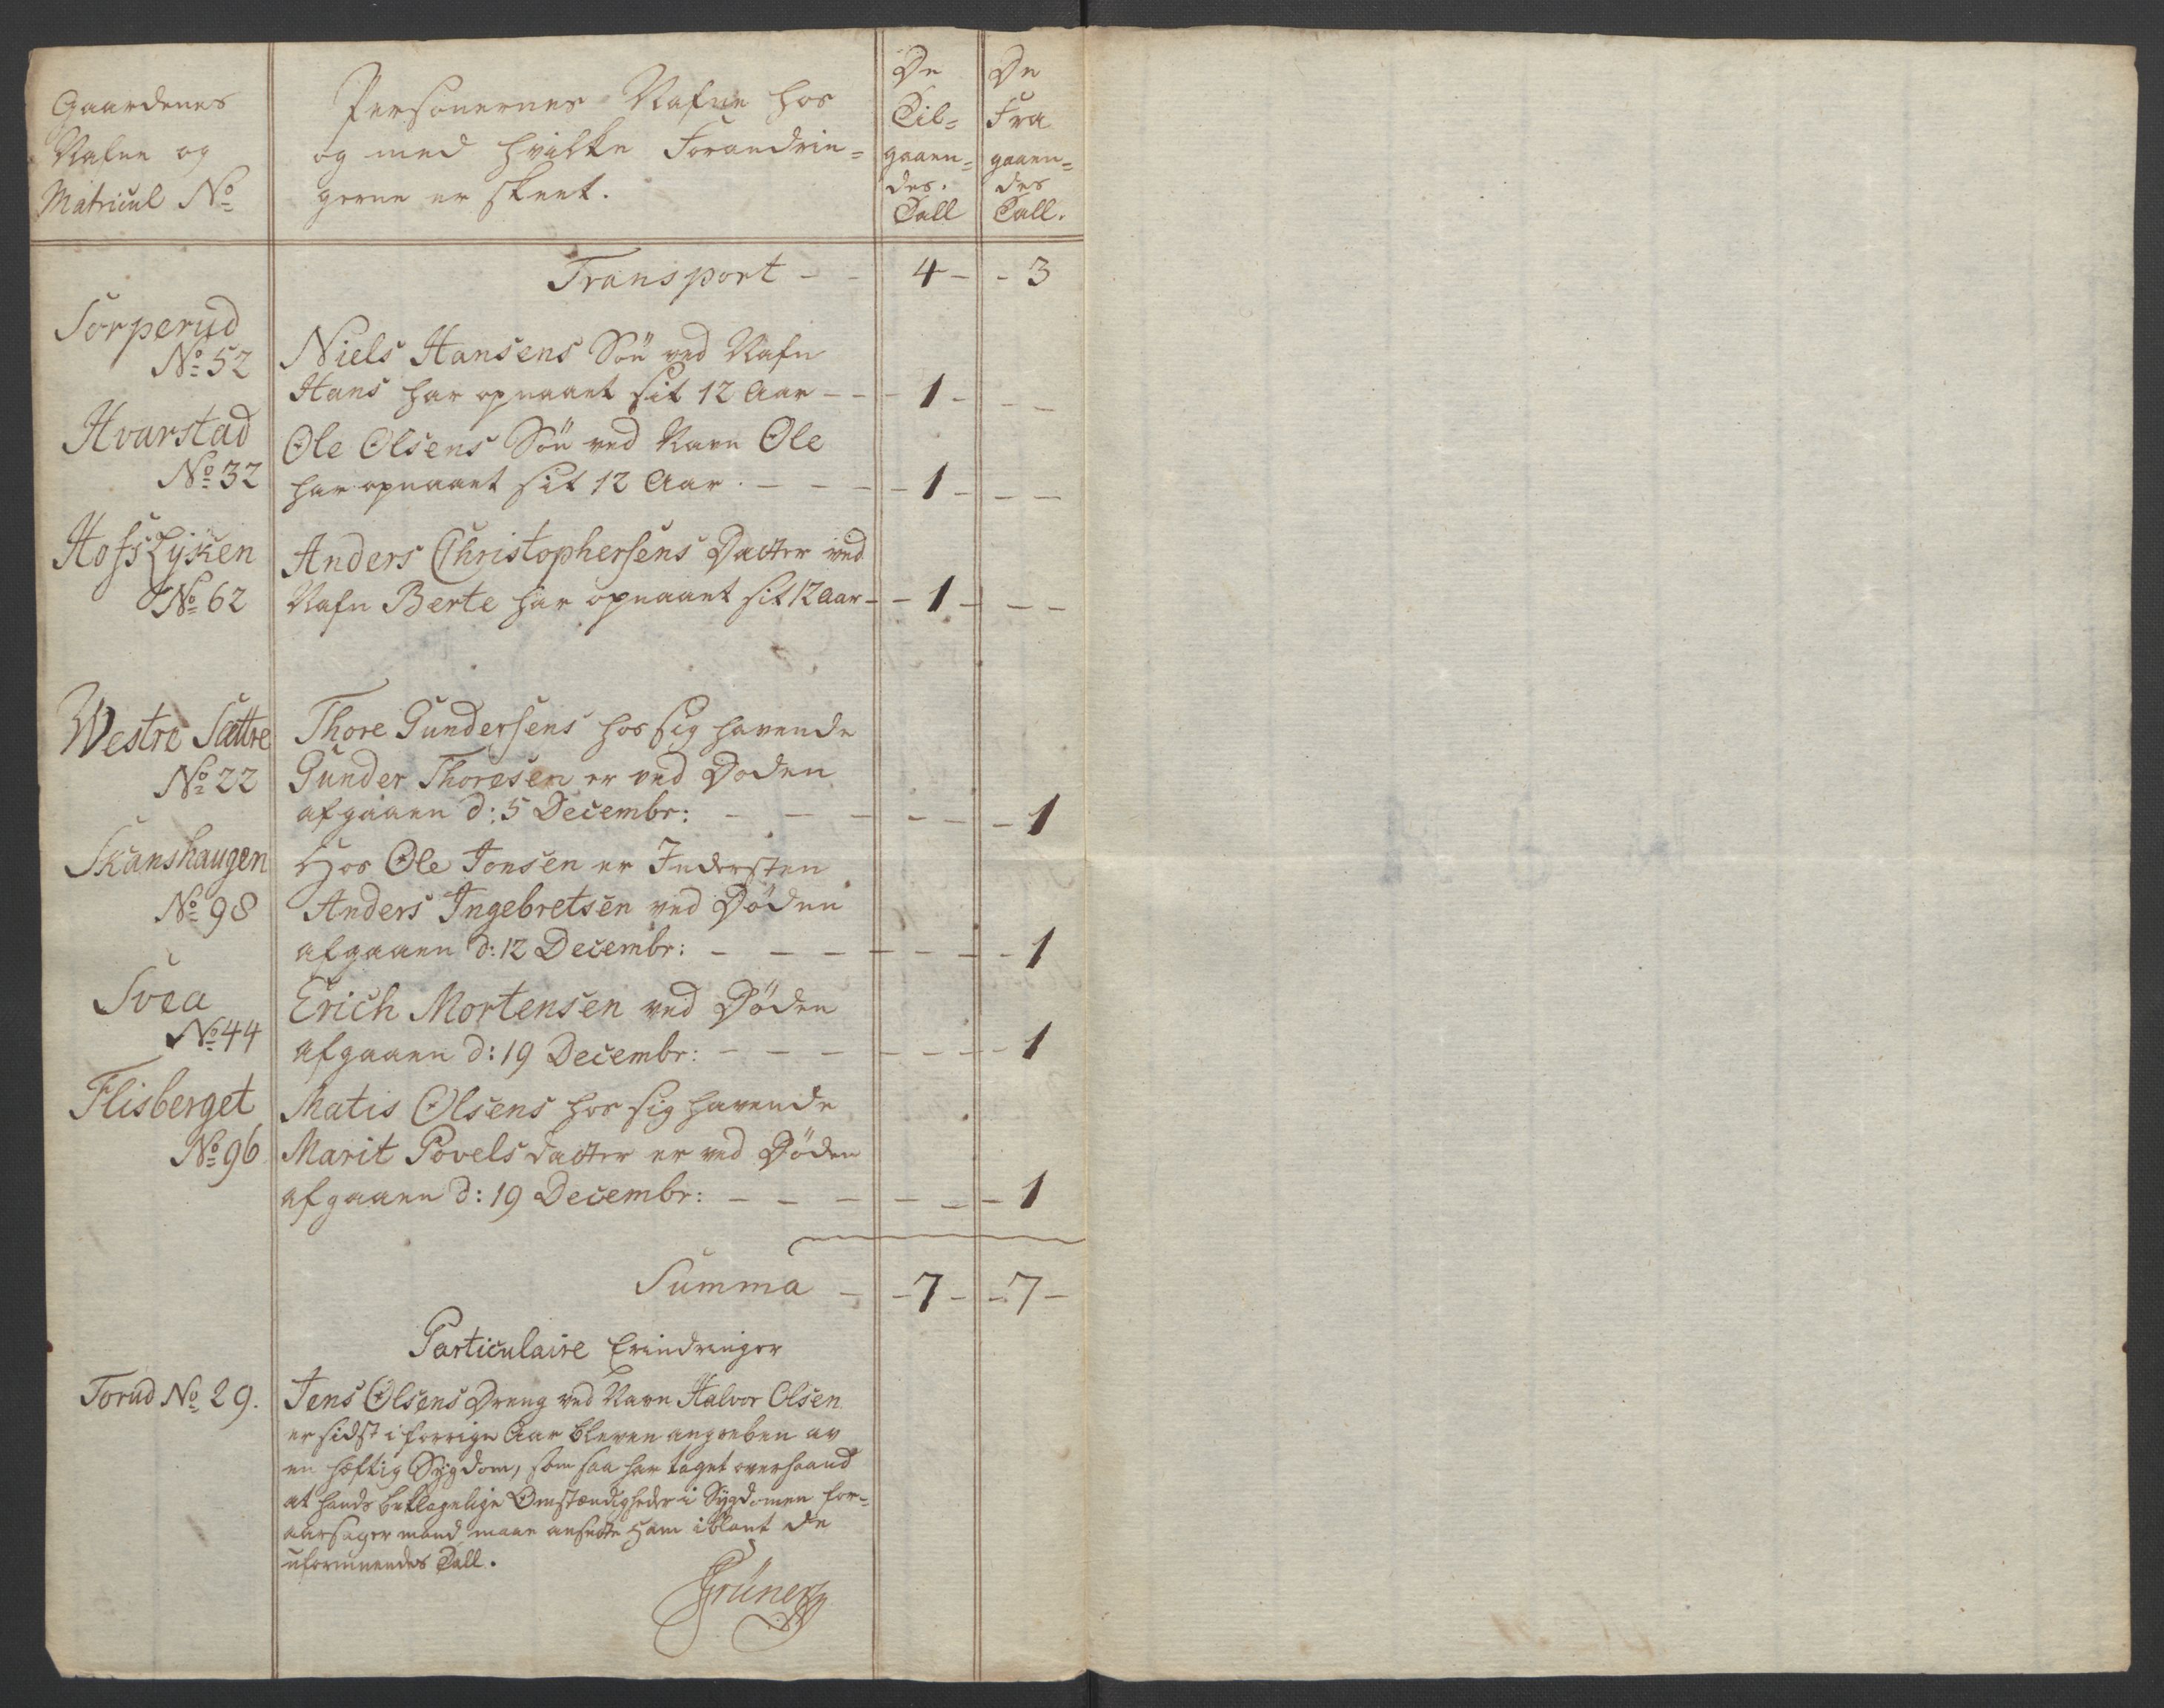 Gaardenes
Nafne og
Matricul No
Personernes Nafne hos
og med hvilke Forandrin=
gerne er skeet.
De
Til=
gaaen=
des.
Tall
De
Fra
gaaen=
des
Tall.
Transport - - 4 - - 3
Sorperud
No 52
Niels Hansens Sön ved Nafn
Hans har opnaaet sit 12 Aar - - - 1 - - -
Hvarstad
No 32
Ole Olsens Sön ved Navn Ole
har opnaaet sit 12 Aar. - - - - 1 - - -
HofsLyken
No 62
Anders Christophersens Datter ved
Nafn Berte har opnaaet sit 12 Aar - - 1 - - -
Westre Sættre
No 22
Thore Gundersens hos sig havende
Gunder Thoresen er ved Doden
afgaaen d: 5 Decembr: - - - - - - 1
Skanshaugen
No 98
Hos Ole Jonsen er Indersten
Anders Ingebretsen ved Döden
afgaaen d: 12 Decembr: - - - - - - - 1
Svea
No 44
Erich Mortensen ved Döden
afgaaen d: 19 Decembr: - - - - - - - 1
Flisberget
No 96
Matis Olsens hos sig havende
Marit Povels datter er ved Döden
afgaaen d: 19 Decembr: - - - - - - 1
Summa - - 7 - - 7 -
Particulaire Erindringer
Torud No 29.
Jens Olsens Dreng ved Navn Halvor Olsen
er sidst i forrige Aar bleven angreben av
en hæftig Sygdom, som saa har taget overhaand
at hands beklagelige Omstændigheder i Sygdomen for=
aarsager mand maae ansætte ham iblant de
uformuendes Tall.
Grüner